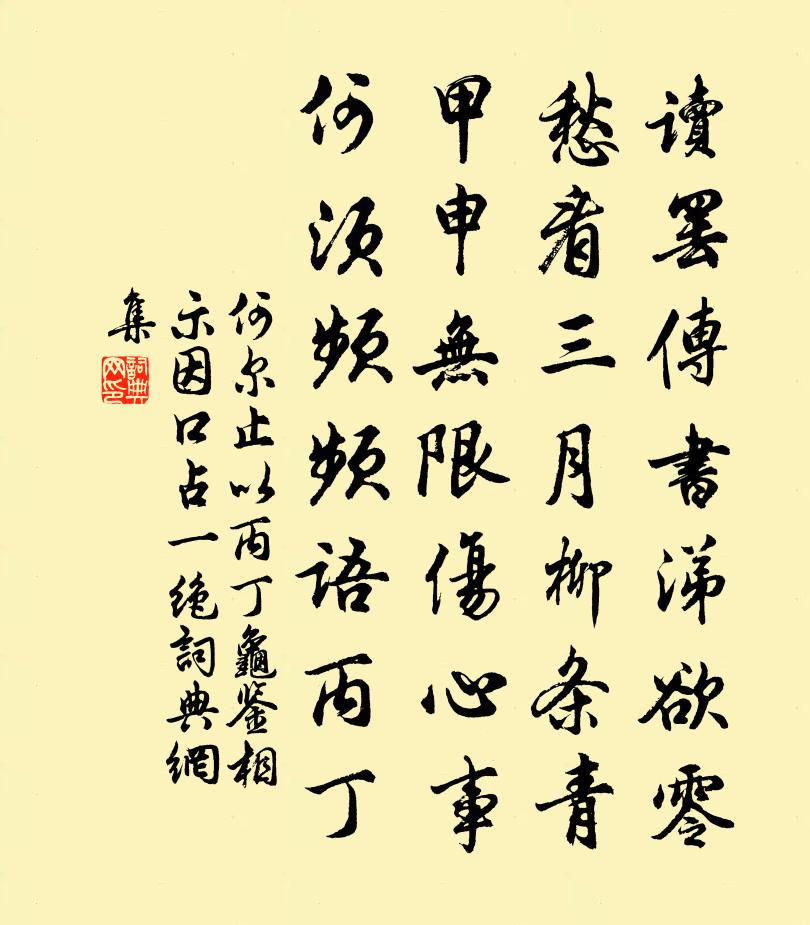 讀罷傳書涕欲零
愁看三月柳条青
甲申無限傷心事
何須頻頻語丙丁
何尔止以丙丁龜鉴相
示因口占一絶詞典網
集
詞典
网印